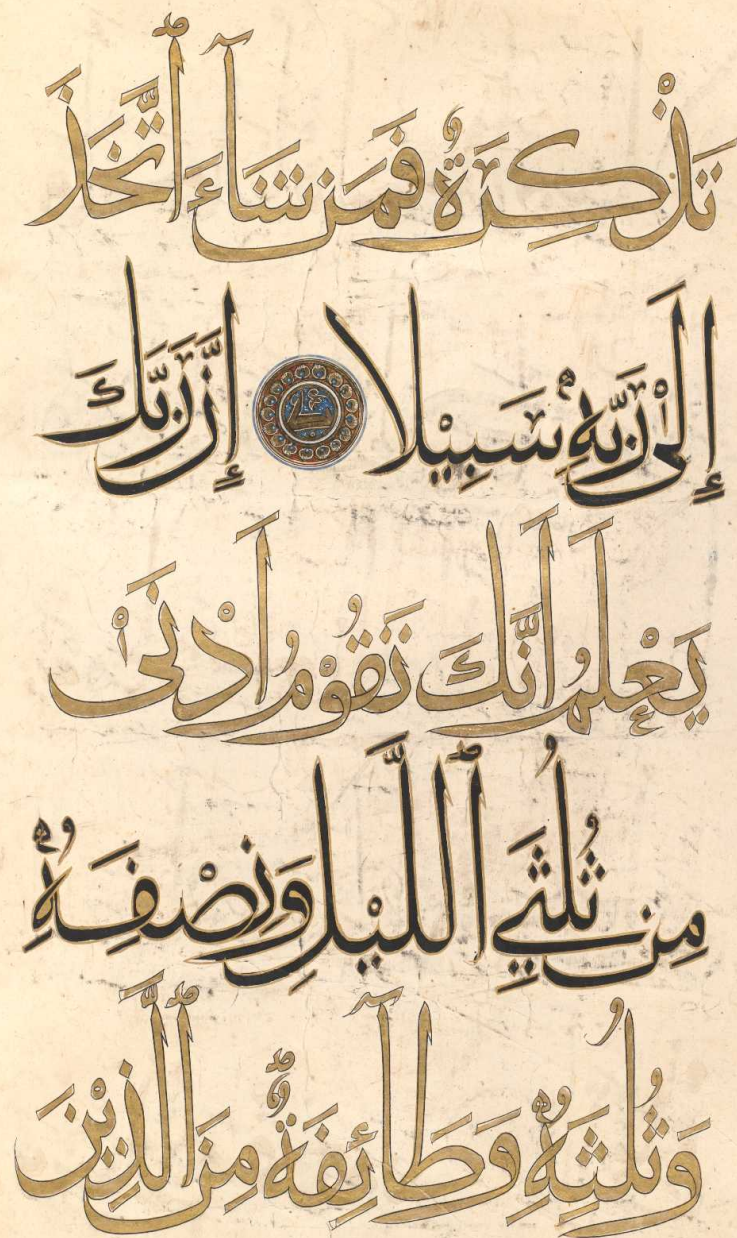 تَذْكِرَةٌ فَمَن شَآءَ ٱتَّخَذَ
إِلَىٰ رَبِّهِۦ سَبِيْلًا إِنَّ رَبَّكَ
يَعْلَمُ أَنَّكَ تَقُوْمُ أَدْنَىٰ
مِن ثُلُثَيِ ٱللَّيْلِ وَنِصْفِهِۦ
وَثُلُثِهِۦ وَطَآئِفَةٌ مِنَ ٱلَّذِيْنَ